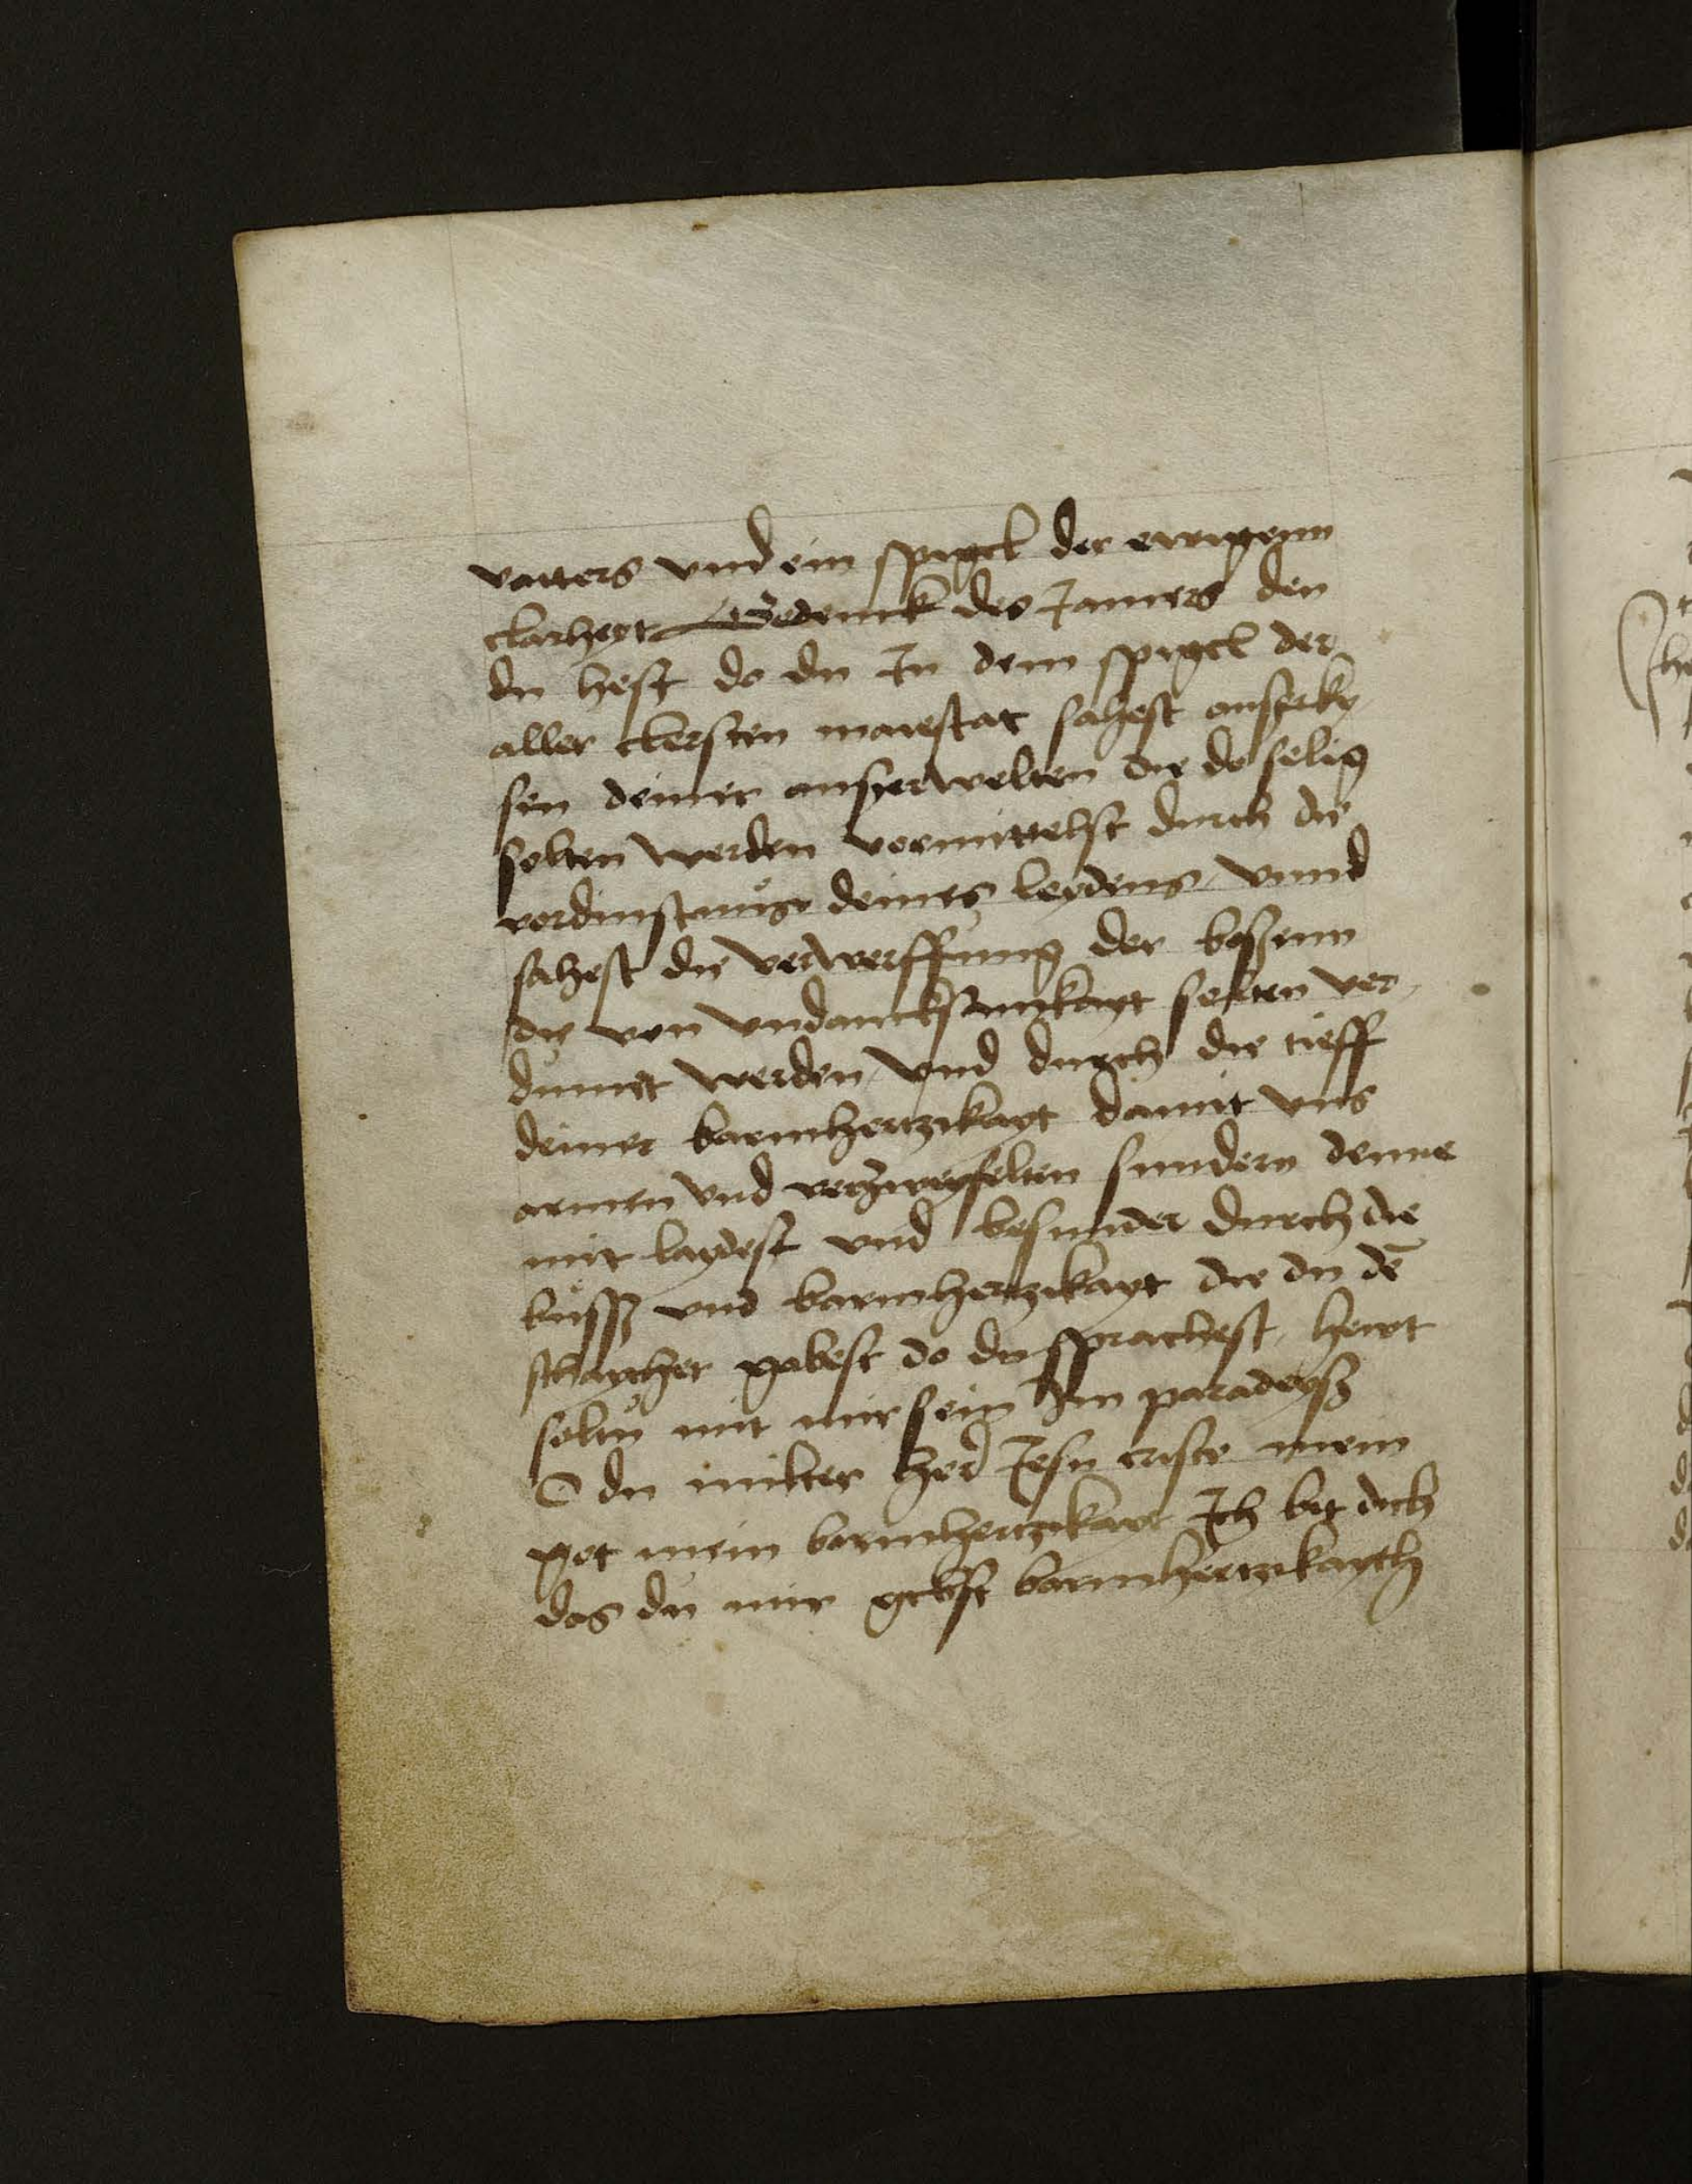 vatters vnd ein spigel der ewigenn
clarheyt Gedenck des Jamers den
du hest do du Jn dem spigel der
aller clersten maiestat sahest ausserky
sen deiner ausserwelten die do selig
solten werden vermittelst durch die
verdinstnuß deines leydens vnnd
sahest die verwerffung der boßenn
die von vndancksamkayt solten ver,
dumet werden vnd durch die tieff
deiner barmhertzikayt damit vns
armen vnd verzweyfelten sundern denne
mit laydest vnd besunder durch die
kuͦssz vnd barmhertzikayt die du de᷑
schaycher gabest do du sprachest hewt
soltu mit mir sein Jm paradeysz
O du milter her Jesu criste mein
got mein barmhertzikayt Jch bit dich
das du mir gebst barmhertzikayth